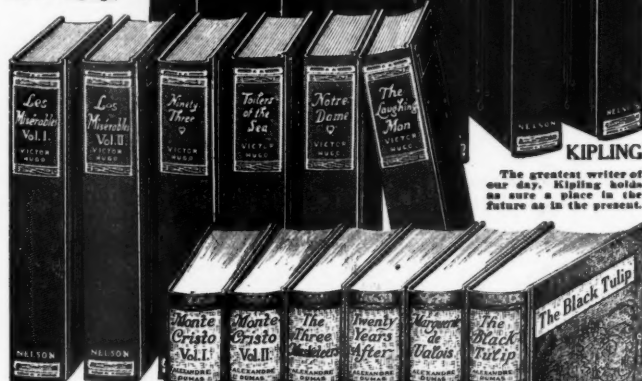 Les
Misérables
Vol. I.
VICTOR
HUGO
NELSON
Les
Misérables
Vol. II
VICTOR
HUGO
NELSON
Ninety
Three
VICTOR
HUGO
Toilers
of the
Sea
VICTOR
HUGO
Notre
Dame
VICTOR
HUGO
The
Laughing
Man
VICTOR
HUGO
NELSON
NELSON
KIPLING
The greatest writer of
our day. Kipling holds
as sure a place in the
future as in the present.
Monte
Cristo
Vol. I.
ALEXANDRE
DUMAS
Monte
Cristo
Vol. II.
ALEXANDRE
DUMAS
The
Three
Musketeers
ALEXANDRE
DUMAS
Twenty
Years
After
ALEXANDRE
DUMAS
Marguerite
de
Valois
ALEXANDRE
DUMAS
The
Black
Tulip
ALEXANDRE
DUMAS
The Black Tulip